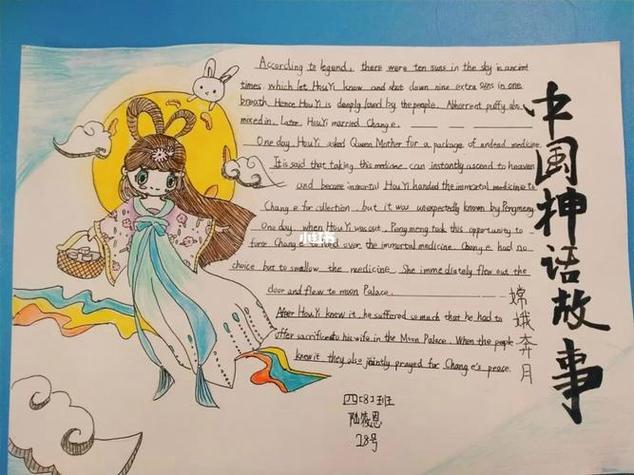 According to legend, there were ten suns in the sky in ancient
times, which let HouYi know and shot down nine extra suns in one
breath. Hence HouYi is deeply loved by the people. Abhorrent puffy also
mixed in. Later, HouYi married Chang e.
One day HouYi asked Queen Mother for a package of undead medicine.
It is said that taking this medicine can instantly ascend to heaven
and become immortal HouYi handed the immortal medicine to
Chang e for collection, but it was unexpectedly known by Pengmeng
One day, when HouYi was out, Pengmeng took this opportunity to
force Chang e to hand over the immortal medicine. Chang e had no
choice but to swallow the medicine. She immediately flew out the
door and flew to moon Palace.
After HouYi knew it, he suffered so much that he had to
offer sacrifices to his wife in the Moon Palace. When the people
knew it they also jointly prayed for Chang e's peace.
中国神话故事
嫦娥奔月
小红书
四(8)班
陆 恩
28号